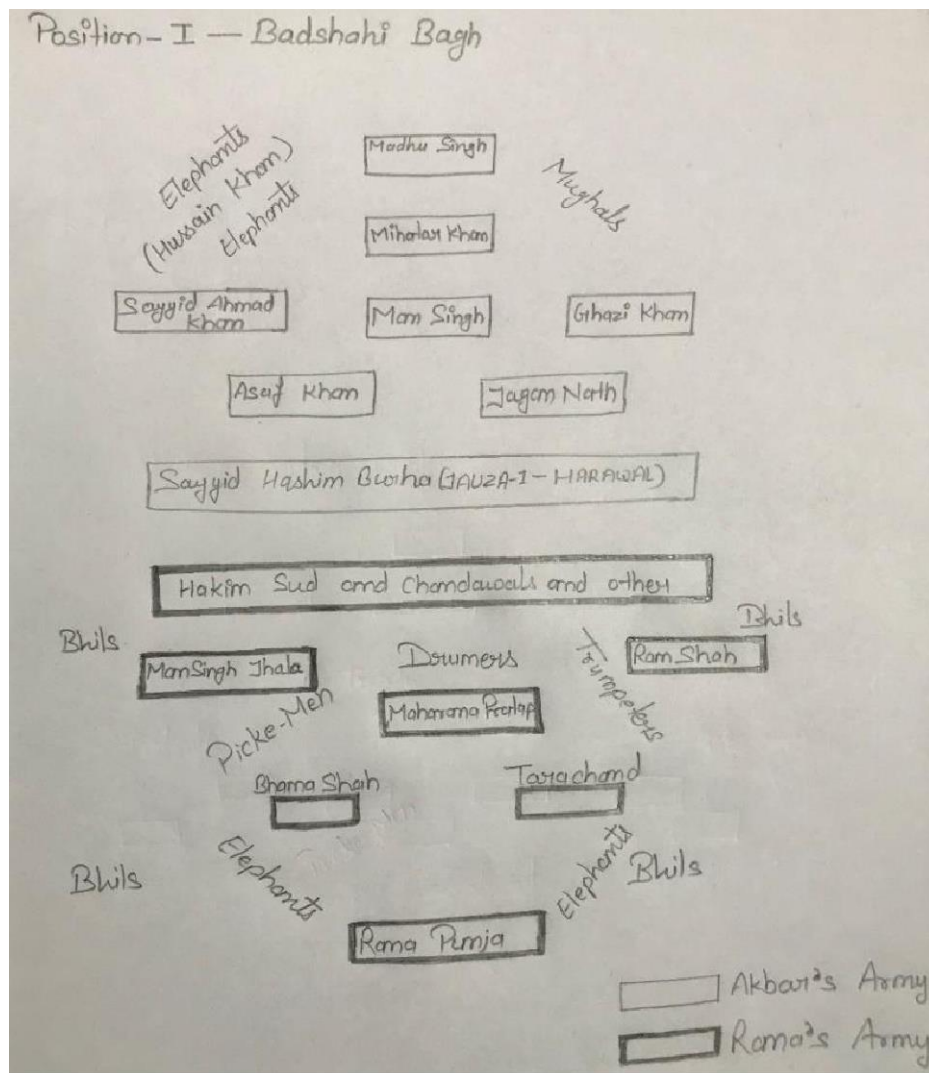 Position-I — Badshahi Bagh
Elephants
(Hussain Khan)
Elephants
Madhu Singh
Mughals
Mihatar Khan
Sayyid Ahmad
Khan
Man Singh
Ghazi Khan
Asaf Khan
Jagan Nath
Sayyid Hashim Burha (JAUZA-I-HARAWAL)
Hakim Sud and Chandawals and other
Bhils
Bhils
ManSingh Jhala
Drumers
Trumpeters
Ram Shah
Picke-Men
Maharana Pratap
Bhama Shah
Tarachand
Elephants
Elephants
Bhils
Bhils
Rana Punja
Akbar's Army
Rana's Army